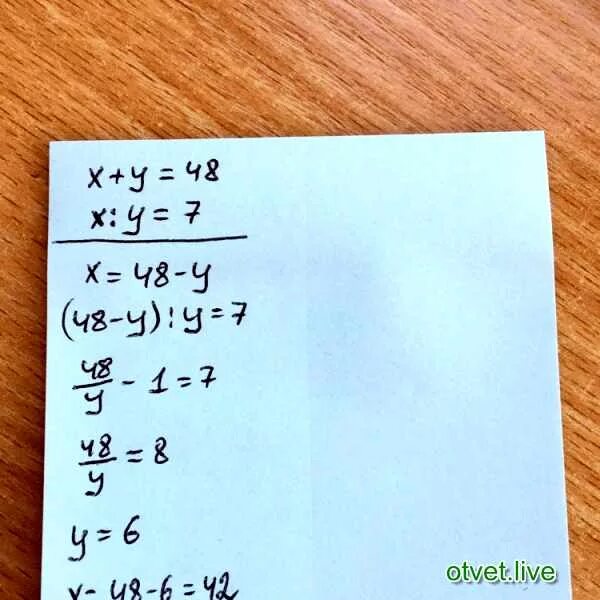 x+y=48
x:y=7
x=48-y
(48-y):y=7
48/y - 1=7
48/y = 8
y=6
x=48-6=42
otvet.live